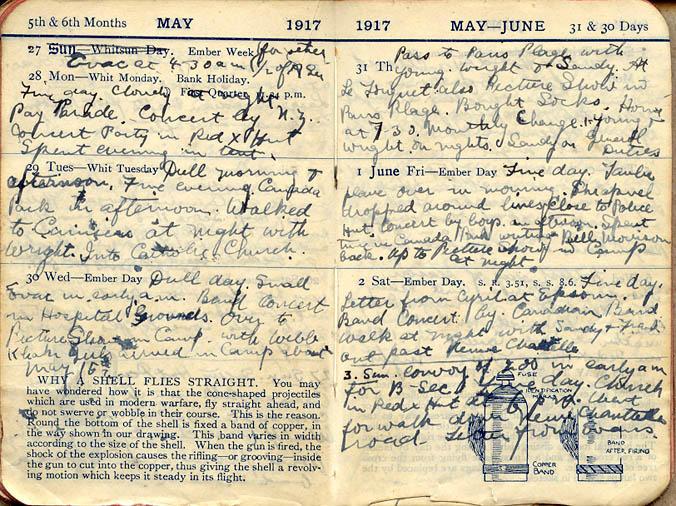 5th & 6th Months MAY 1917
27 Sun—Whitsun Day. Ember Week
Evac at 4.30am
28 Mon—Whit Monday. Bank Holiday.
Fine day. Cloudy at night. First Quarter, p.m.
Pay Parade. Concert by N.Z.
Concert Party in Red X Hut
Spent evening in tent.
29 Tues—Whit Tuesday Dull morning &
afternoon. Fine evening. Canada
Park in afternoon. Walked
to Camiers at night with
Wright. Into Catholic Church.
30 Wed—Ember Day Dull day. Small
Evac in early a.m. Band Concert
in Hospital Grounds. Over to
Picture Show in Camp with Webb
Khaki Club arrived in Camp about
May 15th
WHY A SHELL FLIES STRAIGHT. You may
have wondered how it is that the cone-shaped projectiles
which are used in modern warfare, fly straight ahead, and
do not swerve or wobble in their course. This is the reason.
Round the bottom of the shell is fixed a band of copper, in
the way shown in our drawing. This band varies in width
according to the size of the shell. When the gun is fired, the
shock of the explosion causes the rifling—or grooving—inside
the gun to cut into the copper, thus giving the shell a revolv-
ing motion which keeps it steady in its flight.
1917 MAY—JUNE 31 & 30 Days
Pass to Paris Plage with
31 Th Young. Wright & Sandy. At
Le Touquet also Picture Show in
Paris Plage. Bought Socks. Home
at 7.30. Monthly Change. Young &
Wright on nights. Sandy on General
Duties
1 June Fri—Ember Day Fine day. Taube
plane over in morning. Shrapnel
dropped around lines close to Police
Hut. Concert by boys in afternoon. Spent
time in Canada Hut writing. Bill Morrison
back. Up to Picture Show in Camp
at night
2 Sat—Ember Day. S. R. 3.51, S. S. 8.6. Fine day.
Letter from Cyril at Epsom.
Band Concert by Canadian Band
Walk at night with Sandy &
out past
3. Sun. Convoy of 200 in early am
for B-Sec Fine day. Church
in Red X Hut at 6 P.M. Went
for walk
road. Letter from
FUSE
IDENTIFICATION
COPPER
BAND
BAND
AFTER FIRING